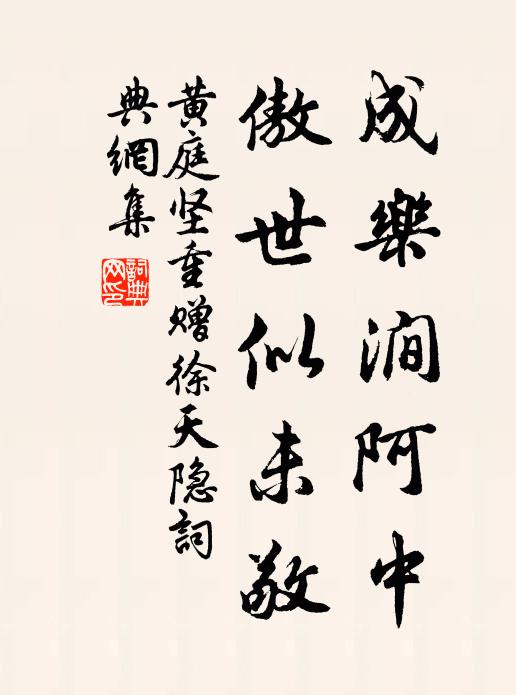 成樂澗阿中
傲世似未敢
黄庭坚重赠徐天隐詞
典網集
詞典
网印